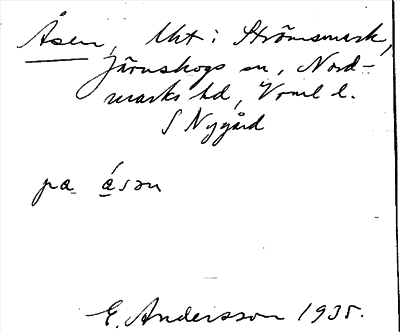 Åsen, Uht i Strömsmark,
Järnskogs sn, Nord-
marks hd, Vrml l.
S Nygård
pa åsən
E. Andersson 1935.